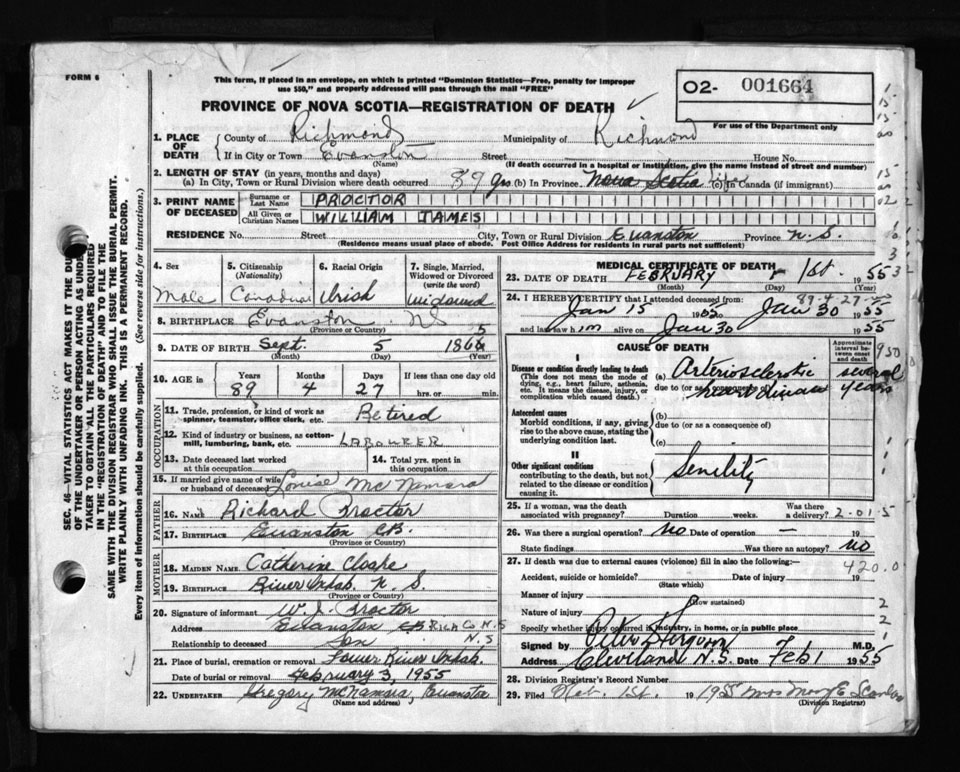 FORM 6
This form, if placed in an envelope, on which is printed "Dominion Statistics—Free, penalty for improper
use $50," and properly addressed will pass through the mail "FREE"
O2- 001664
For use of the Department only
PROVINCE OF NOVA SCOTIA—REGISTRATION OF DEATH
1. PLACE OF DEATH { County of Richmond Municipality of Richmond
If in City or Town Evanston Street House No.
(Name) (If death occurred in a hospital or institution, give the name instead of street and number)
2. LENGTH OF STAY (in years, months and days)
(a) In City, Town or Rural Division where death occurred 89 yrs (b) In Province Nova Scotia (c) In Canada (if immigrant)
3. PRINT NAME OF DECEASED { Surname or Last Name PROCTOR
All Given or Christian Names WILLIAM JAMES
RESIDENCE No. Street City, Town or Rural Division Evanston Province N.S.
(Residence means usual place of abode. Post Office Address for residents in rural parts not sufficient)
SEC. 46—VITAL STATISTICS ACT MAKES IT THE DUTY
OF THE UNDERTAKER OR PERSON ACTING AS UNDER-
TAKER TO OBTAIN ALL THE PARTICULARS REQUIRED
IN THE "REGISTRATION OF DEATH" AND TO FILE THE
SAME WITH THE DIVISION REGISTRAR WHO SHALL ISSUE THE BURIAL PERMIT.
WRITE PLAINLY WITH UNFADING INK. THIS IS A PERMANENT RECORD.
Every item of information should be carefully supplied. (See reverse side for instructions.)
4. Sex Male
5. Citizenship (Nationality) Canadian
6. Racial Origin Irish
7. Single, Married, Widowed or Divorced (write the word) widowed
8. BIRTHPLACE Evanston N S
(Province or Country)
9. DATE OF BIRTH Sept. 5 1865
(Month) (Day) (Year)
10. AGE in Years 89 Months 4 Days 27 If less than one day old hrs. or min.
OCCUPATION
11. Trade, profession, or kind of work as spinner, teamster, office clerk, etc. Retired
12. Kind of industry or business, as cotton-mill, lumbering, bank, etc. LABOURER
13. Date deceased last worked at this occupation
14. Total yrs. spent in this occupation
15. If married give name of wife or husband of deceased Louise McNamara
FATHER
16. Name Richard Proctor
17. BIRTHPLACE Evanston CB.
(Province or Country)
MOTHER
18. MAIDEN NAME Catherine Cloake
19. BIRTHPLACE River Inhab. N. S.
(Province or Country)
20. Signature of informant W. J. Proctor
Address Evanston RICH CO N.S
Relationship to deceased Son N.S
21. Place of burial, cremation or removal Lower River Inhab.
Date of burial or removal February 3, 1955
22. UNDERTAKER Gregory McNamara, Evanston
(Name and address)
MEDICAL CERTIFICATE OF DEATH
23. DATE OF DEATH FEBRUARY 1st. 1955
(Month) (Day) (Year)
89-4-27
24. I HEREBY CERTIFY that I attended deceased from:
Jan 15 1955 to Jan 30 1955
and last saw him alive on Jan 30 1955
CAUSE OF DEATH
Approximate interval between onset and death
I
Disease or condition directly leading to death
(This does not mean the mode of dying, e.g., heart failure, asthenia, etc. It means the disease, injury, or complication which caused death.)
(a) Arteriosclerotic several
due to (or as a consequence of) heart disease years
Antecedent causes
Morbid conditions, if any, giving rise to the above cause, stating the underlying condition last.
(b)
due to (or as a consequence of)
(c)
II
Other significant conditions
contributing to the death, but not related to the disease or condition causing it.
Senility
25. If a woman, was the death associated with pregnancy? Duration weeks. Was there a delivery? 2-01-5
26. Was there a surgical operation? NO Date of operation —
State findings Was there an autopsy? NO
27. If death was due to external causes (violence) fill in also the following:—
420.0
Accident, suicide or homicide? Date of injury
(State which)
Manner of injury
(How sustained)
Nature of injury
Specify whether injury occurred in industry, in home, or in public place
Signed by M.D.
Address Cleveland N.S. Date Feb 1 1955
28. Division Registrar's Record Number
29. Filed 1st. 19 1955 Mrs Mary E Scanlan
(Division Registrar)